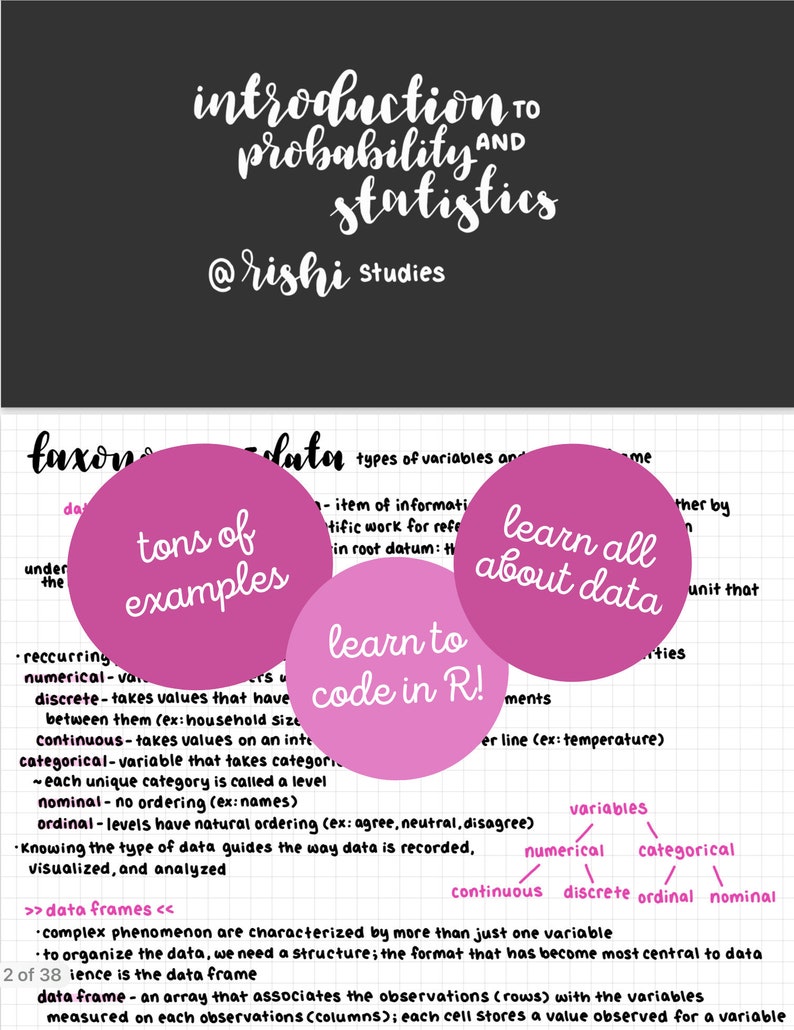 introduction TO
probability AND
statistics
@rishi Studies
data types of variables and
- item of
tific work for
in root datum:
the unit that
tons of
examples
learn all
about data
learn to
code in R!
·reccurring
numerical -
discrete - takes values that have
between them (ex: household
continuous - takes values on an line (ex: temperature)
categorical - variable that takes
~ each unique category is called a level
nominal - no ordering (ex: names)
ordinal - levels have natural ordering (ex: agree, neutral, disagree)
·Knowing the type of data guides the way data is recorded,
visualized, and analyzed
variables
numerical categorical
continuous discrete ordinal nominal
>> data frames <<
·complex phenomenon are characterized by more than just one variable
·to organize the data, we need a structure; the format that has become most central to data
2 of 38 ience is the data frame
data frame - an array that associates the observations (rows) with the variables
measured on each observations (columns); each cell stores a value observed for a variable